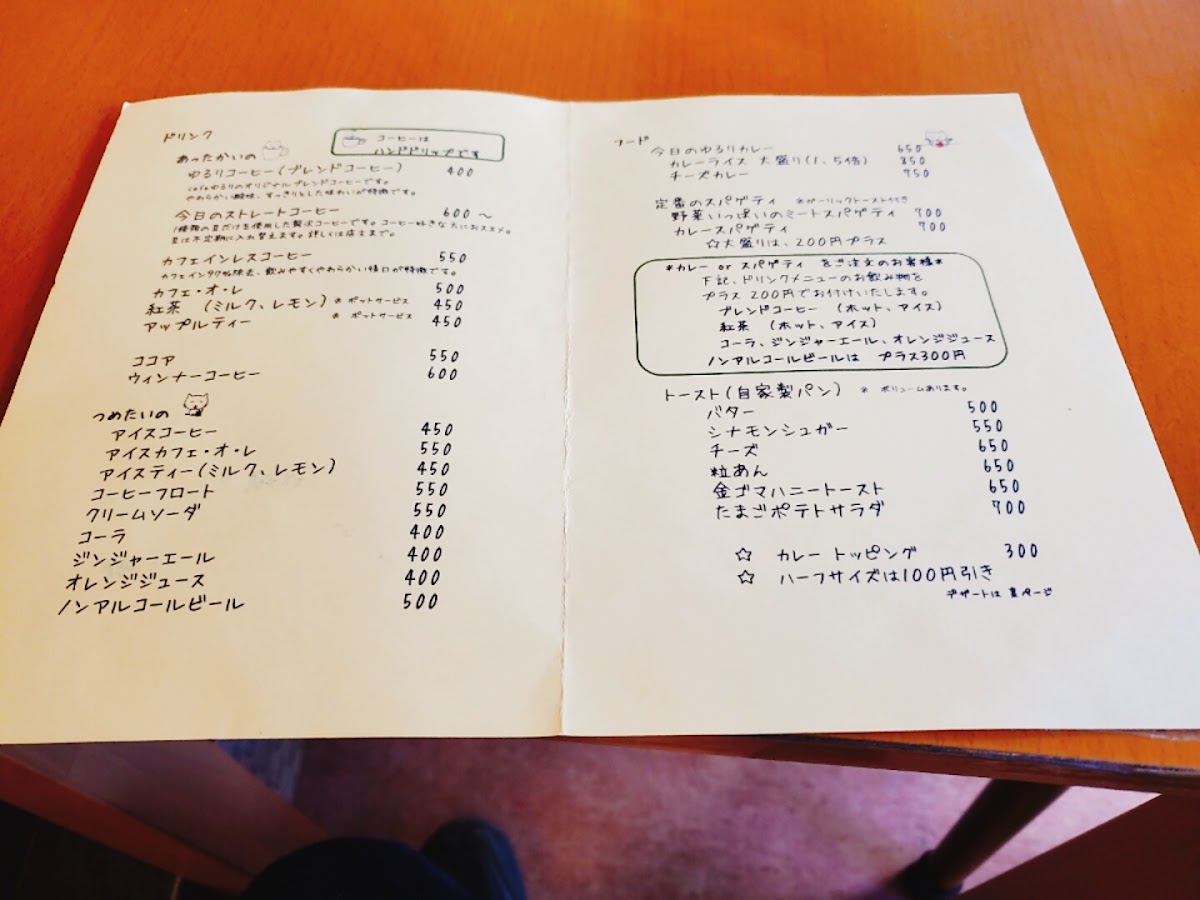 ドリンク
コーヒーは
ハンドドリップです
あったかいの
ゆるりコーヒー(ブレンドコーヒー) 400
cafeゆるりのオリジナルブレンドコーヒーです。
やわらかい酸味、すっきりとした味わいが特徴です。
今日のストレートコーヒー 600〜
1種類の豆だけを使用した贅沢コーヒーです。コーヒー好きな方におススメ。
豆は不定期に入れ替えます。詳しくは店主まで。
カフェインレスコーヒー 550
カフェイン97%除去、飲みやすくやわらかい口が特徴です。
カフェ・オ・レ 500
紅茶 (ミルク、レモン) ※ ポットサービス 450
アップルティー ※ ポットサービス 450
ココア 550
ウィンナーコーヒー 600
つめたいの
アイスコーヒー 450
アイスカフェ・オ・レ 550
アイスティー(ミルク、レモン) 450
コーヒーフロート 550
クリームソーダ 550
コーラ 400
ジンジャーエール 400
オレンジジュース 400
ノンアルコールビール 500
フード
今日のゆるりカレー 650
カレーライス 大盛り(1、5倍) 850
チーズカレー 750
定番のスパゲティ ※ガーリックトースト付き
野菜いっぱいのミートスパゲティ 700
カレースパゲティ 700
☆大盛りは、200円プラス
*カレー or スパゲティ をご注文のお客様*
下記、ドリンクメニューのお飲み物を
プラス 200円でお付けいたします。
ブレンドコーヒー (ホット、アイス)
紅茶 (ホット、アイス)
コーラ、ジンジャーエール、オレンジジュース
ノンアルコールビールは プラス300円
トースト(自家製パン) ※ ボリュームあります。
バター 500
シナモンシュガー 550
チーズ 650
粒あん 650
金ゴマハニートースト 650
たまごポテトサラダ 700
☆ カレー トッピング 300
☆ ハーフサイズは100円引き
デザートは 裏ページ